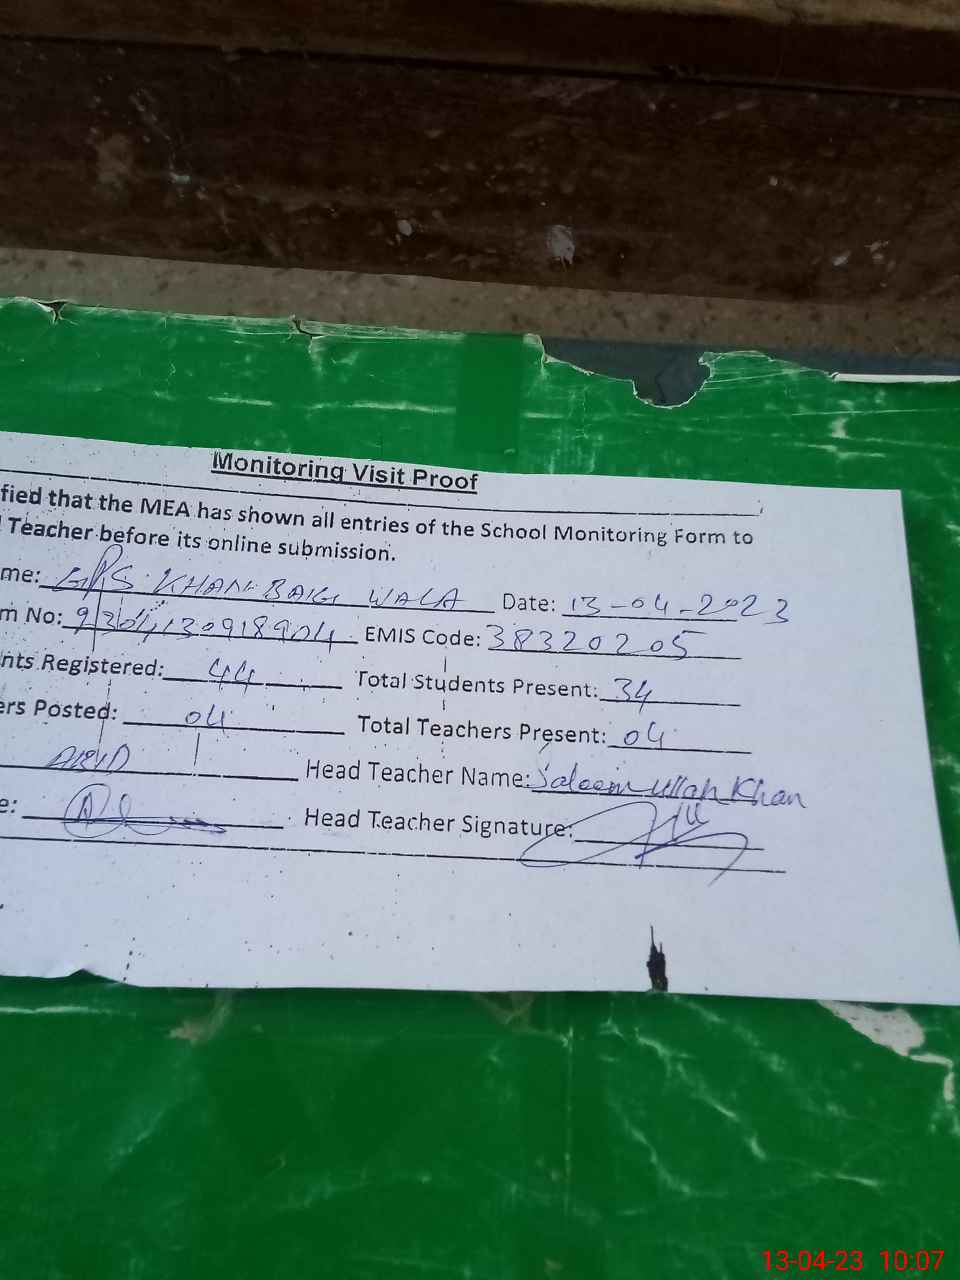 Monitoring Visit Proof
fied that the MEA has shown all entries of the School Monitoring Form to
Teacher before its online submission.
me: GPS KHAN BAIG WALA Date: 13-04-2023
m No: EMIS Code: 38320205
nts Registered: 44 Total Students Present: 34
ers Posted: 04 Total Teachers Present: 04
Head Teacher Name: Saleem ullah Khan
e: Head Teacher Signature:
13-04-23 10:07